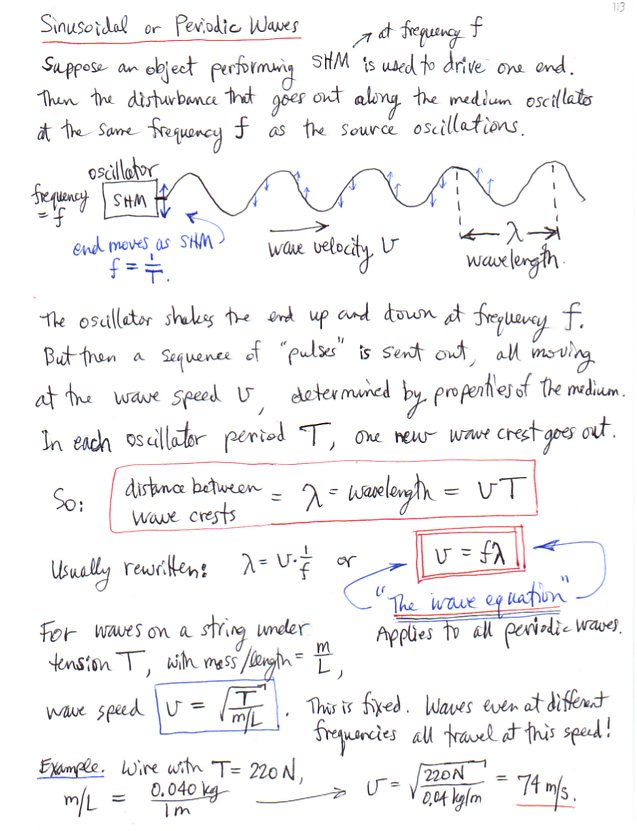 113
Sinusoidal or Periodic Waves
at frequency f
Suppose an object performing SHM is used to drive one end.
Then the disturbance that goes out along the medium oscillates
at the same frequency f as the source oscillations.
oscillator
frequency = f
SHM
end moves as SHM
f = 1/T.
wave velocity v
λ
wavelength.
The oscillator shakes the end up and down at frequency f.
But then a sequence of "pulses" is sent out, all moving
at the wave speed v, determined by properties of the medium.
In each oscillator period T, one new wave crest goes out.
So: distance between wave crests = λ = wavelength = vT
Usually rewritten: λ = v · 1/f or v = fλ
"The wave equation"
Applies to all periodic waves.
For waves on a string under
tension T, with mass/length = m/L,
wave speed v = √(T/(m/L)). This is fixed. Waves even at different
frequencies all travel at this speed!
Example. Wire with T = 220 N,
m/L = 0.040 kg/1m → v = √(220 N/0.04 kg/m) = 74 m/s.